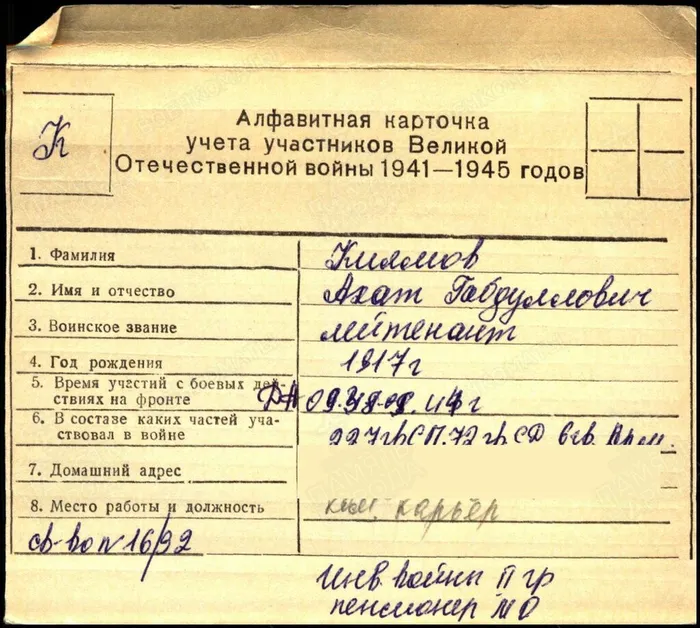 К
Алфавитная карточка
учета участников Великой
Отечественной войны 1941—1945 годов
1. Фамилия
Киямов
2. Имя и отчество
Ахат Габдуллович
3. Воинское звание
лейтенант
4. Год рождения
1917г
5. Время участий с боевых дей-
ствиях на фронте
6. В составе каких частей уча-
ствовал в войне
227гвСП. 72гвСД
7. Домашний адрес
8. Место работы и должность
карьер
св-во N 16/92
Инв. войны II гр
пенсионер МО